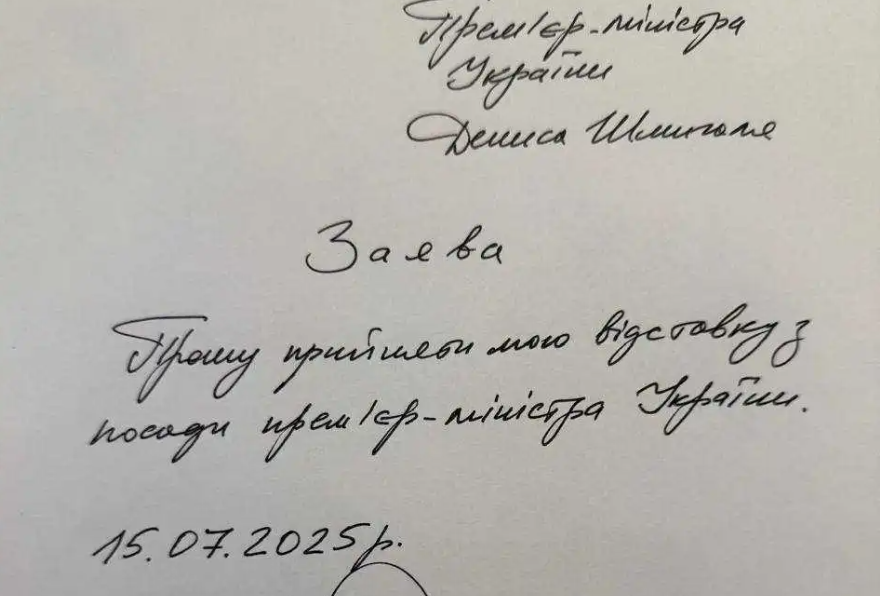 Прем'єр-міністра
України
Дениса Шмигаля
Заява
Прошу прийняти мою відставку з
посади прем'єр-міністра України.
15.07.2025р.